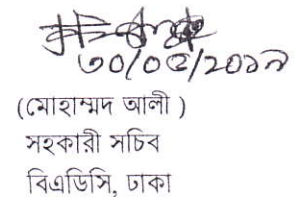 ৩০/০৫/২০১৯
(মোহাম্মদ আলী )
সহকারী সচিব
বিএডিসি, ঢাকা